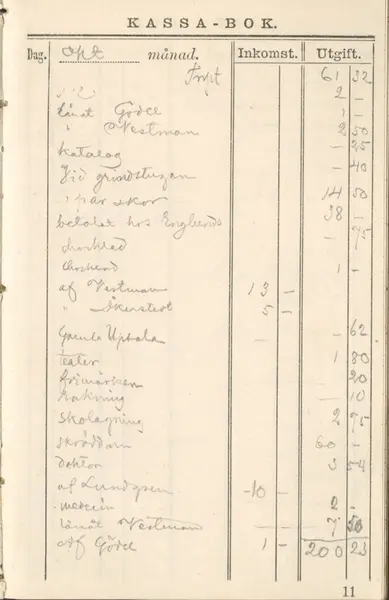 KASSA-BOK.
Dag. Opt månad. Inkomst. Utgift.
Trspt 61 32
2 –
lånat Gödel 1 –
" Vestman 2 50
katalog – 25
Vid grindstugan – 40
1 par skor 14 50
betalat hos Englunds 38 –
choklad – 75
1 –
af Vestman 13 –
" Åkerstedt 5 –
Gamla Upsala – 62
Teater 1 80
frimärken 20
Rakning 10
skolagning 2 75
skräddarn 60 –
doktor 3 54
af Lundgren 10 –
medecin 2 –
lånat Vestman 7 50
Af Gödel 1 – 200 23
11